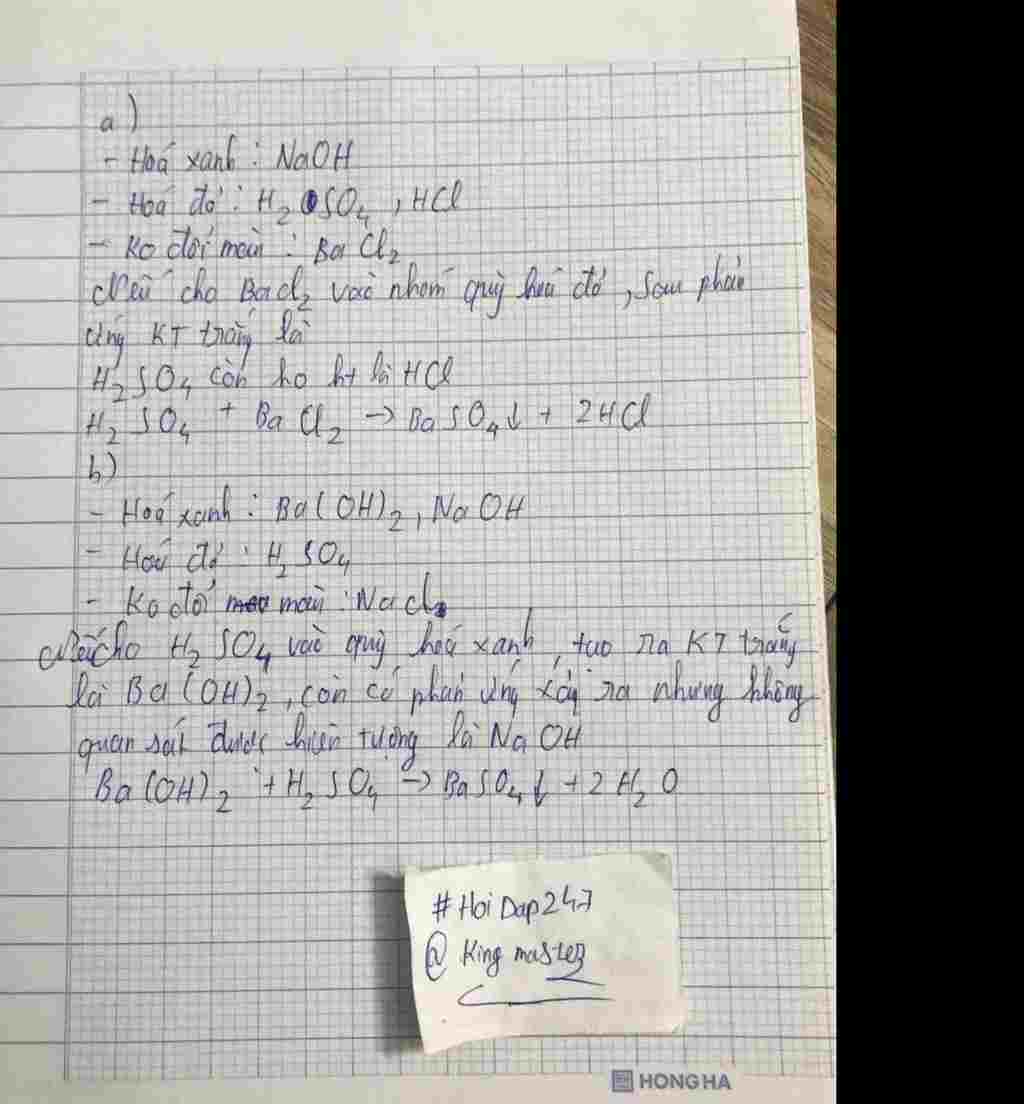 a)
- Hoá xanh : NaOH
- Hoá đỏ : H₂SO₄, HCl
- Ko đổi màu : BaCl₂
Nếu cho BaCl₂ vào nhóm quỳ hoá đỏ, sau phản
ứng KT trắng là
H₂SO₄ còn ko ht là HCl
H₂SO₄ + BaCl₂ → BaSO₄↓ + 2HCl
b)
- Hoá xanh : Ba(OH)₂, NaOH
- Hoá đỏ : H₂SO₄
- Ko đổi màu : NaCl
Nếu cho H₂SO₄ vào quỳ hoá xanh, tạo ra KT trắng
là Ba(OH)₂, còn có phản ứng xảy ra nhưng không
quan sát được hiện tượng là NaOH
Ba(OH)₂ + H₂SO₄ → BaSO₄↓ + 2H₂O
#HoiDap247
@King master
HONG HA